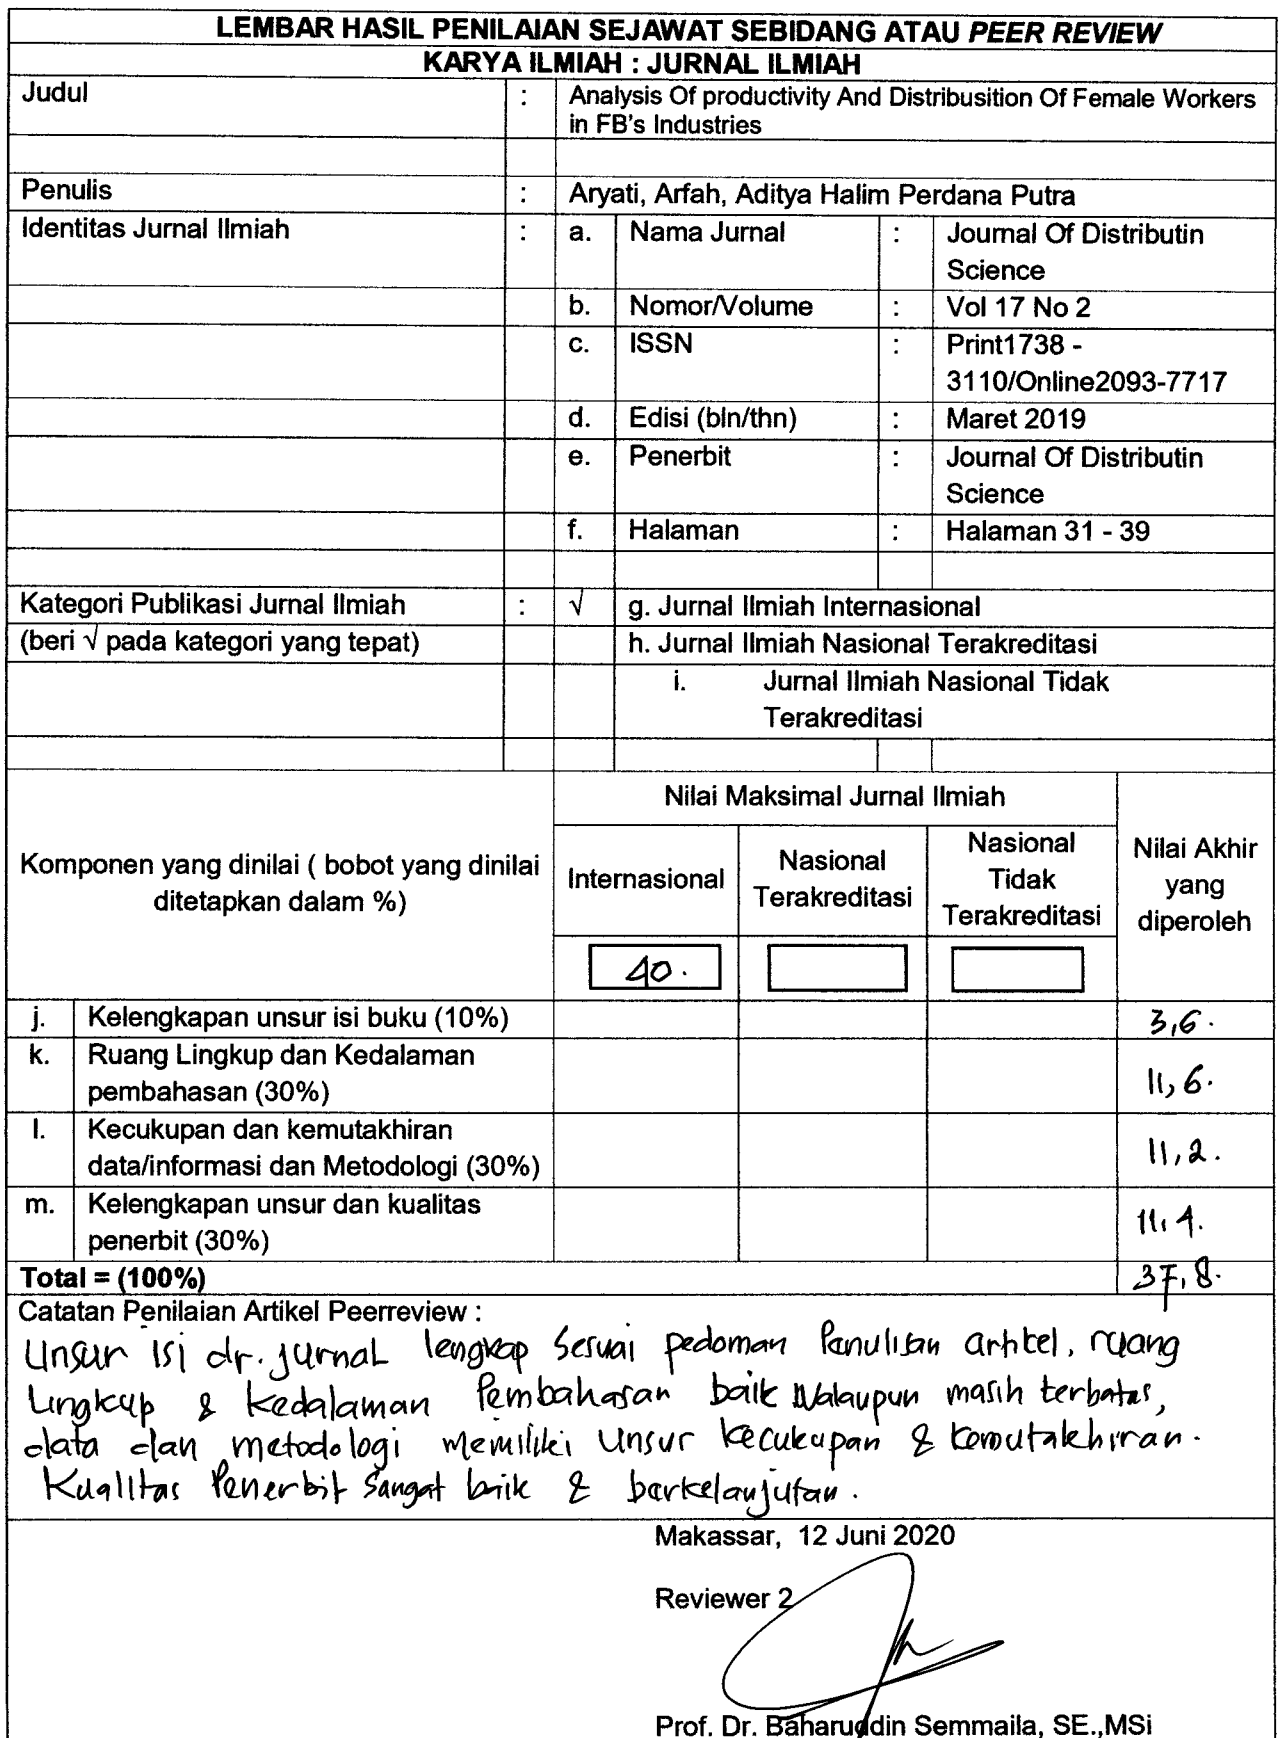 LEMBAR HASIL PENILAIAN SEJAWAT SEBIDANG ATAU PEER REVIEW
KARYA ILMIAH : JURNAL ILMIAH
Judul : Analysis Of productivity And Distribusition Of Female Workers
in FB's Industries
Penulis : Aryati, Arfah, Aditya Halim Perdana Putra
Identitas Jurnal Ilmiah : a. Nama Jurnal : Journal Of Distributin
Science
b. Nomor/Volume : Vol 17 No 2
c. ISSN : Print1738 -
3110/Online2093-7717
d. Edisi (bln/thn) : Maret 2019
e. Penerbit : Journal Of Distributin
Science
f. Halaman : Halaman 31 - 39
Kategori Publikasi Jurnal Ilmiah : √ g. Jurnal Ilmiah Internasional
(beri √ pada kategori yang tepat) h. Jurnal Ilmiah Nasional Terakreditasi
i. Jurnal Ilmiah Nasional Tidak
Terakreditasi
Komponen yang dinilai ( bobot yang dinilai
ditetapkan dalam %)
Nilai Maksimal Jurnal Ilmiah
Internasional
Nasional
Terakreditasi
Nasional
Tidak
Terakreditasi
Nilai Akhir
yang
diperoleh
40.
j. Kelengkapan unsur isi buku (10%) 3,6.
k. Ruang Lingkup dan Kedalaman
pembahasan (30%) 11,6.
l. Kecukupan dan kemutakhiran
data/informasi dan Metodologi (30%) 11,2.
m. Kelengkapan unsur dan kualitas
penerbit (30%) 11,4.
Total = (100%) 37,8.
Catatan Penilaian Artikel Peerreview :
Unsur isi dr. jurnal lengkap sesuai pedoman Penulisan artikel, ruang
Lingkup & kedalaman Pembahasan baik walaupun masih terbatas,
data dan metodologi memiliki Unsur kecukupan & kemutakhiran.
Kualitas Penerbit sangat baik & berkelanjutan.
Makassar, 12 Juni 2020
Reviewer 2
Prof. Dr. Baharuddin Semmaila, SE.,MSi